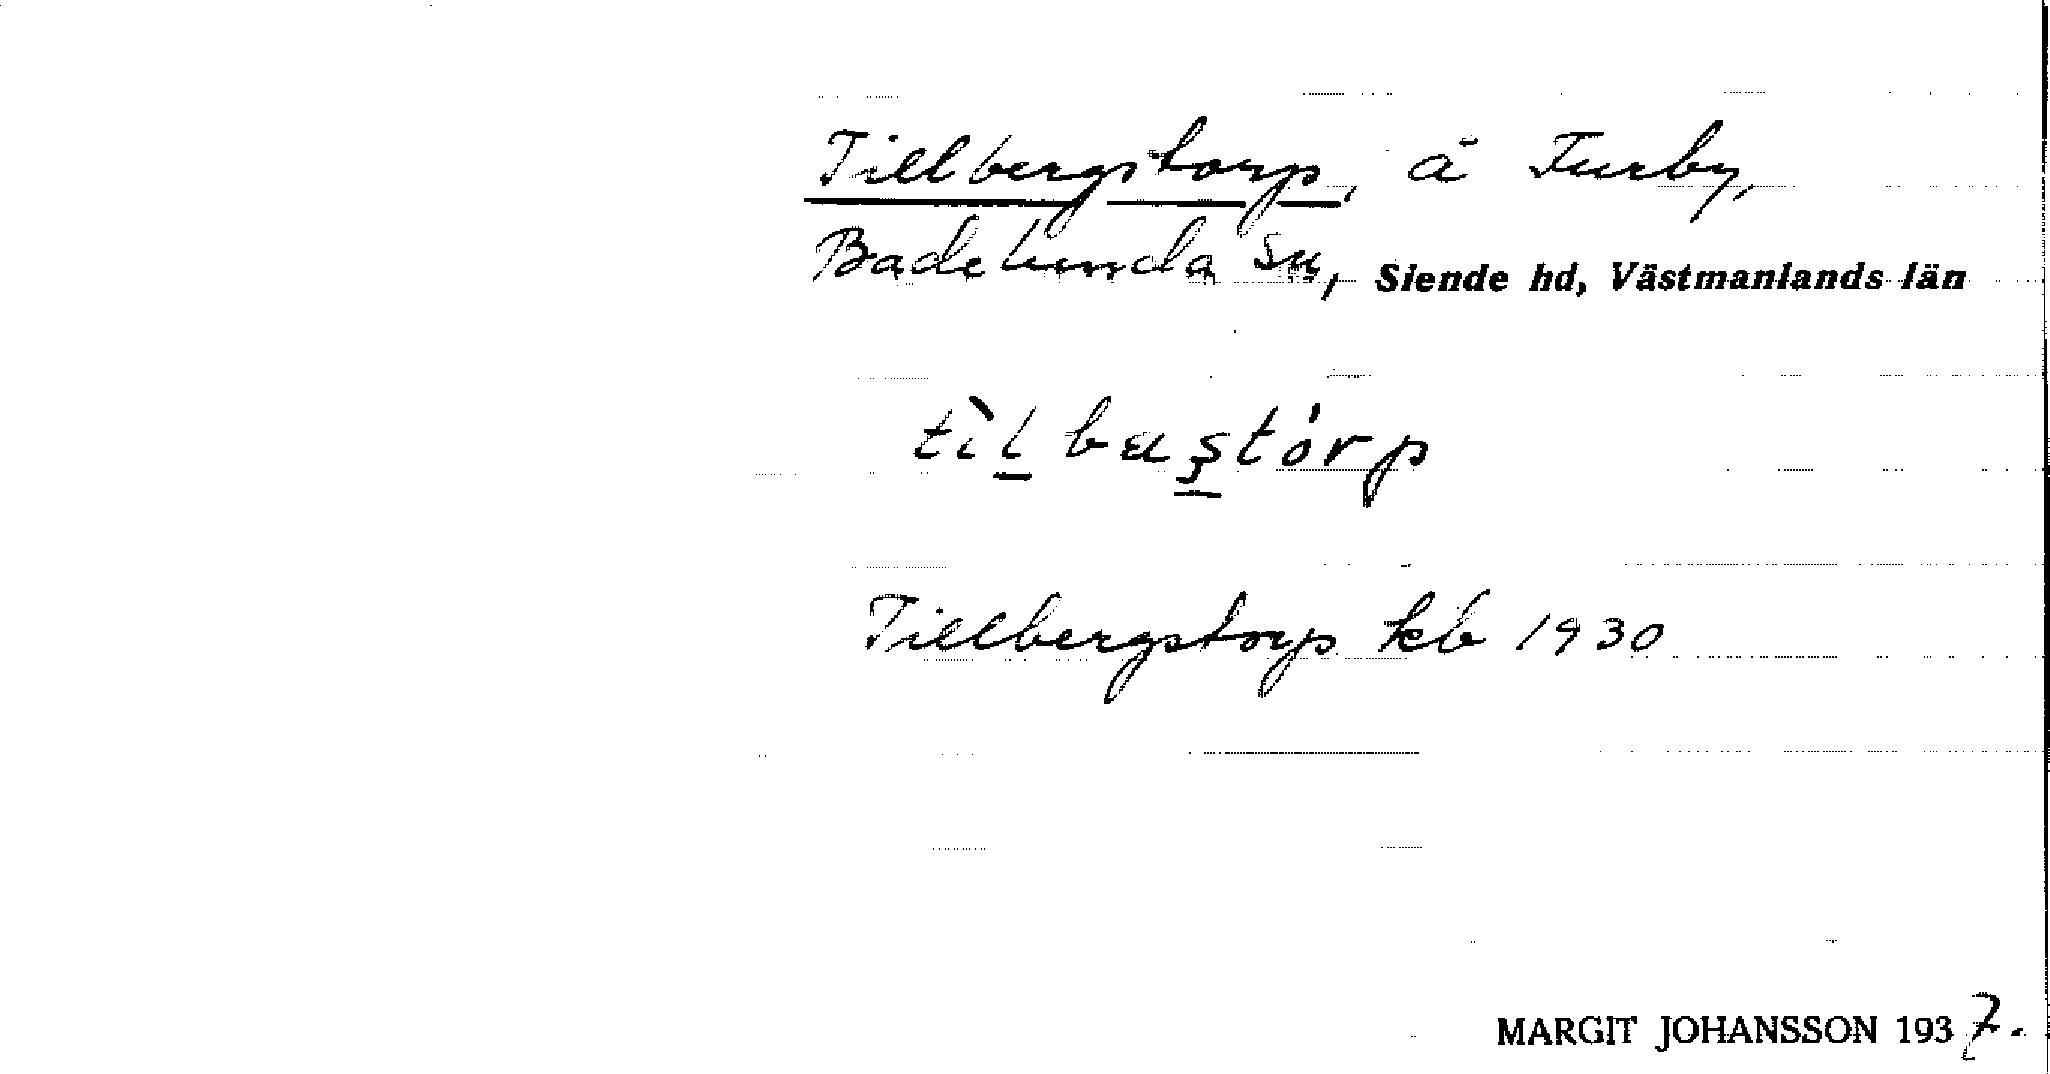 Tillbergstorp, å Turby,
Badelunda sn, Siende hd, Västmanlands län
tìḻbaʂ̱tórp
Tillbergstorp kb 1930
MARGIT JOHANSSON 1937.